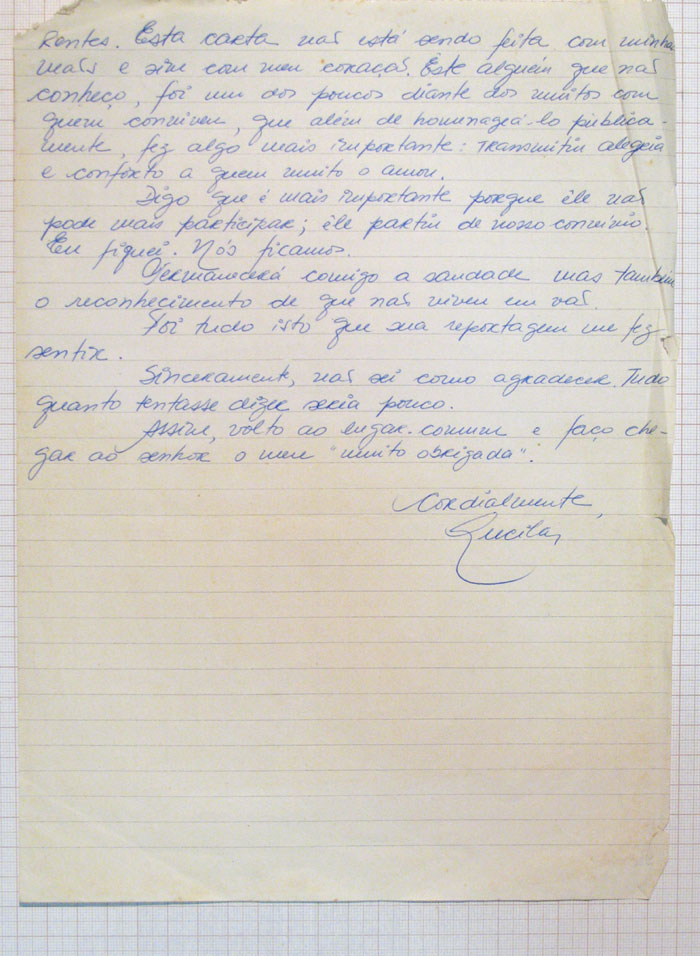 Rentes. Esta carta não está sendo feita com minha
mãos e sim com meu coração. Este alguém que não
conheço, foi um dos poucos diante dos muitos com
quem conviveu, que além de homenageá-lo pública-
mente, fez algo mais importante: transmitiu alegria
e conforto a quem muito o amou.
Digo que é mais importante porque êle não
pode mais participar; êle partiu de nosso convívio.
Eu fiquei. Nós ficamos.
Permanecerá comigo a saudade mas também
o reconhecimento de que não viveu em vão.
Foi tudo isto que sua reportagem me fez
sentir.
Sinceramente, não sei como agradecer. Tudo
quanto tentasse dizer seria pouco.
Assim, volto ao lugar-comum e faço che-
gar ao senhor o meu "muito obrigada".
Cordialmente,
Lucila